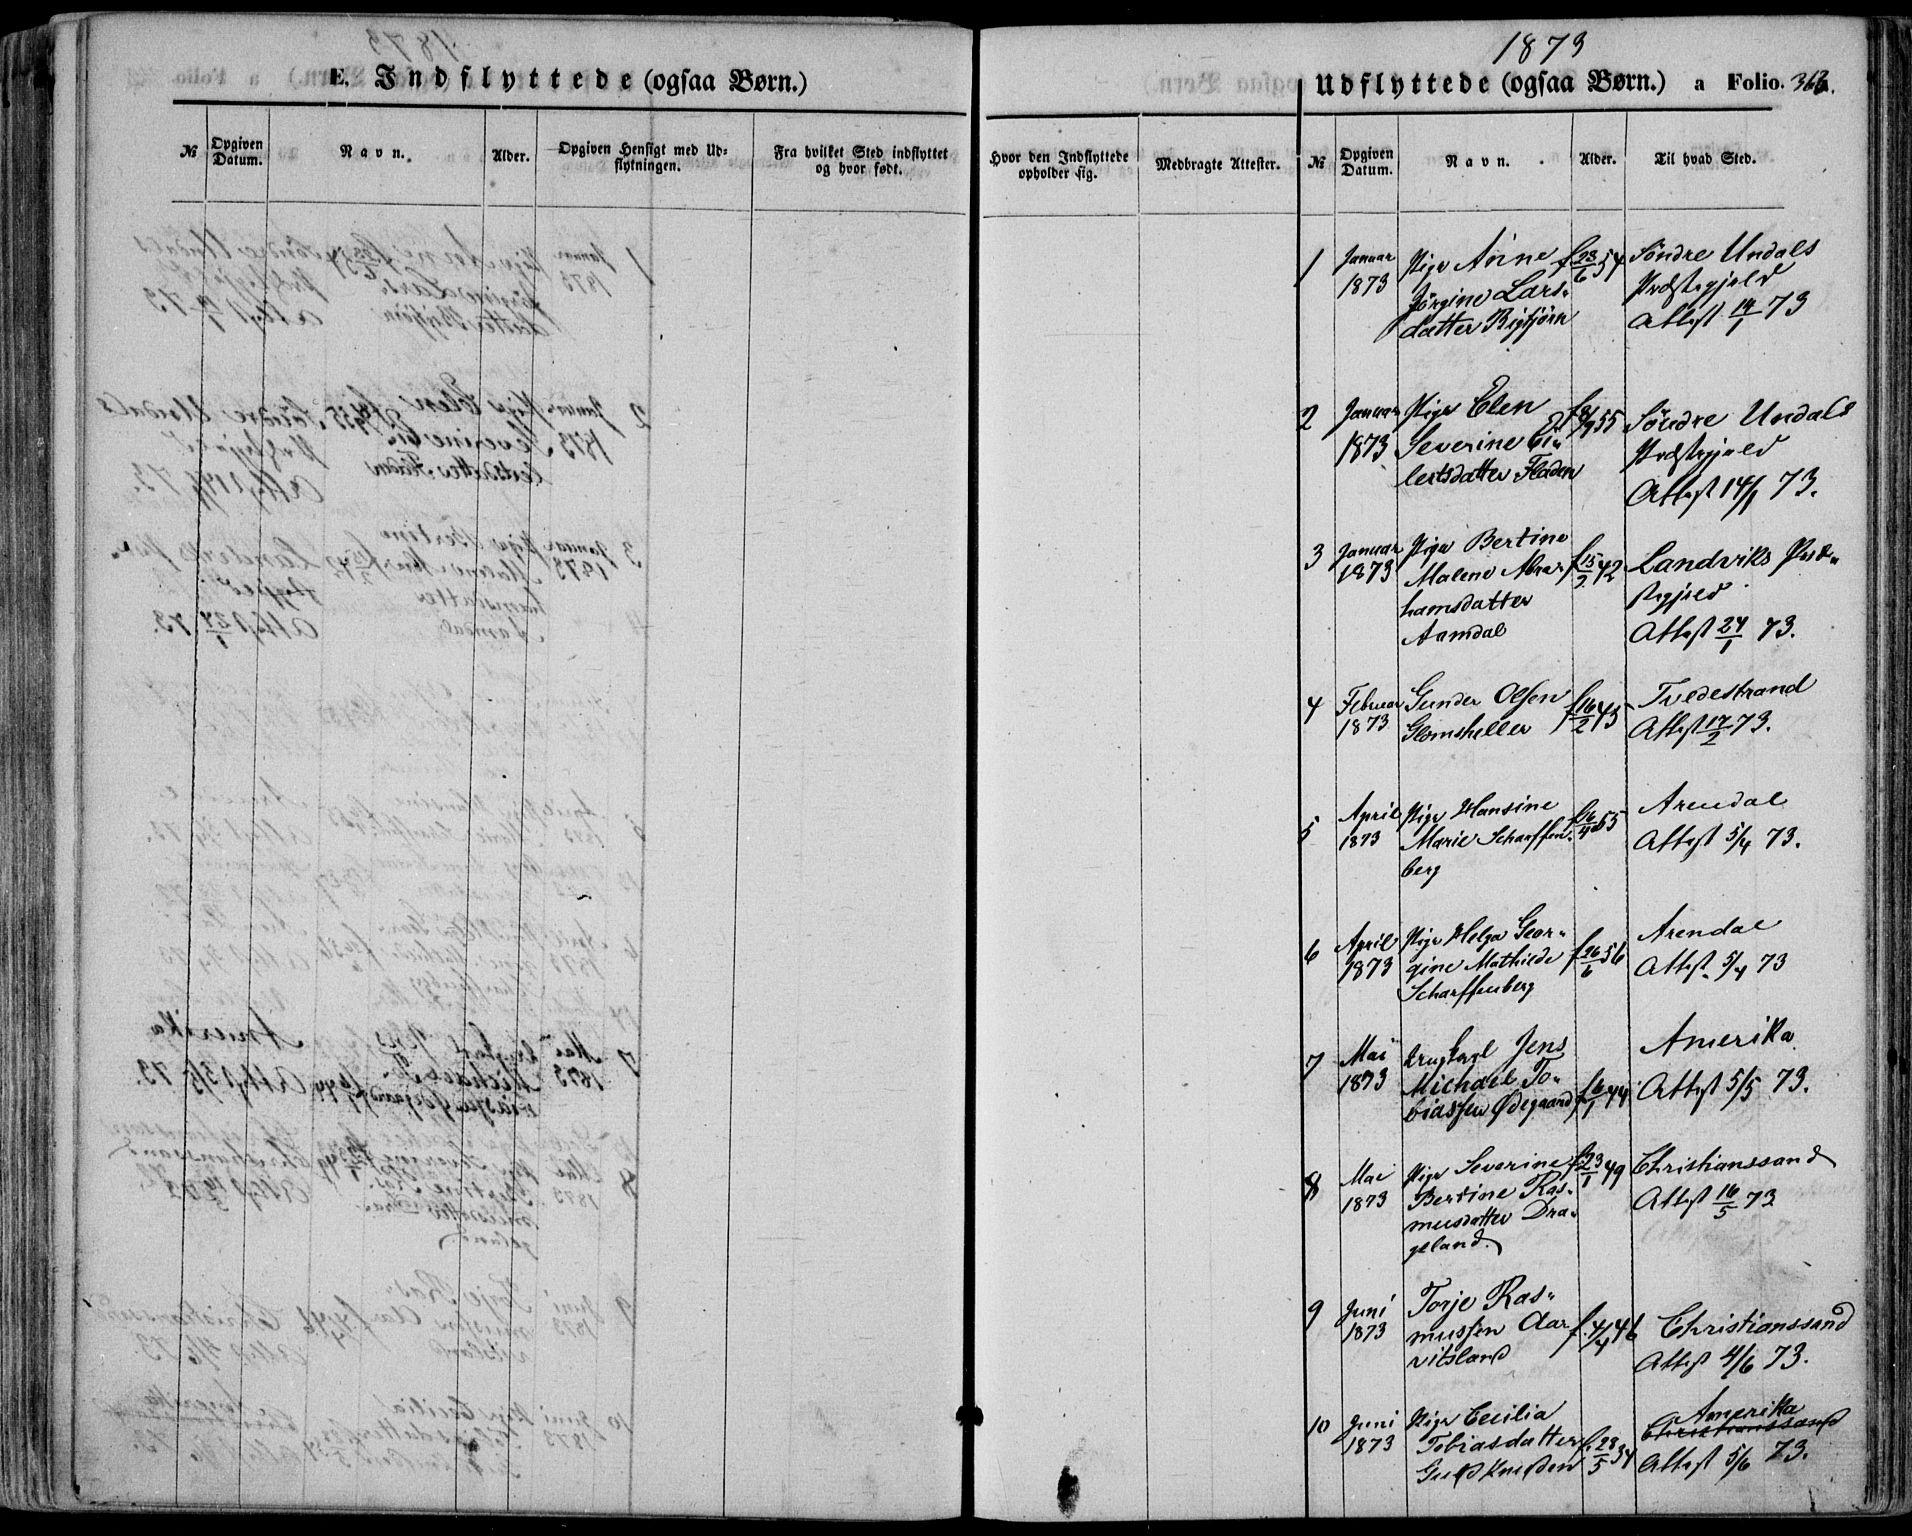 1873
E. Indflyttede (ogsaa Børn.)
Udflyttede (ogsaa Børn.) a Folio. 363.
№ Opgiven Datum. Navn. Alder. Opgiven Hensigt med Udflytningen. Fra hvilket Sted indflyttet og hvor født. Hvor den Indflyttede opholder sig. Medbragte Attester. № Opgiven Datum. Navn. Alder. Til hvad Sted.
1 Januar Pige Anne f 23/6 54 Søndre Undals
1873 Jörgine Lars- Præstegjeld
datter Attest 14/1 73
2 Januar Pige Elen f 8/9 55 Søndre Undals
1873 Severine Ei- Præstegjeld
lertsdatter Fladen Attest 14/1 73.
3 Januar Pige Bertine f 15/2 42 Landviks Præ-
1873 Malene Abra- stegjeld
hamsdatter Attest 24/1 73.
Aamdal
4 Februar Gunder Olsen f 16/2 45 Tvedestrand
1873 Glomsheller Attest 17/2 73.
5 April Pige Hansine 55 Arendal
1873 Marie Scharffen- Attest 5/4 73.
berg
6 April Pige Helga Geor- f 26/6 56 Arendal
1873 gine Mathilde Attest 5/4 73
Scharffenberg
7 Mai Ungkarl Jens Amerika
1873 Michael To- f 6/1 44 Attest 5/5 73.
biassen Ødegaard
8 Mai Pige Severine f 23/1 49 Christianssand
1873 Bertine Ras- Attest 16/5 73
musdatter Dra-
geland.
9 Juni Torje Ras- f 4/4 46 Christianssand
1873 mussen Aar- Attest 4/6 73.
vitsland
10 Juni Pige Cecilia Amerika
1873 Tobiasdatter f. 28/5 34 Christianssand
Attest 5/6 73.